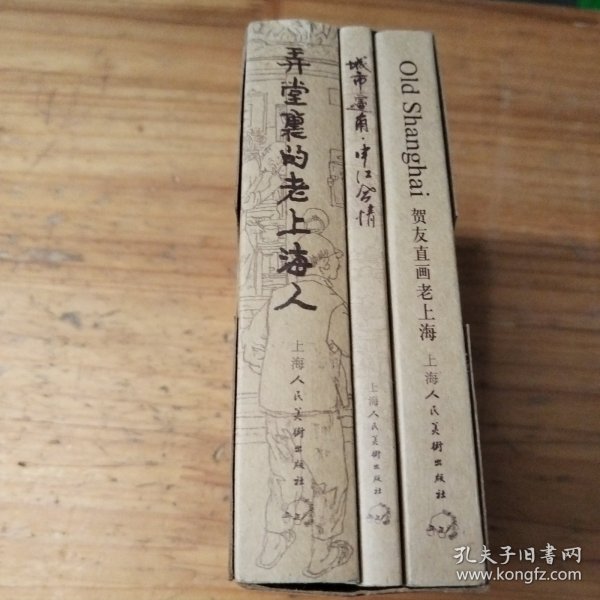 弄堂裏的老上海人
上海人民美術出版社
城市邊角·申江風情
上海人民美術出版社
Old Shanghai 贺友直画老上海
上海人民美術出版社
孔夫子旧书网
www.kongfz.com